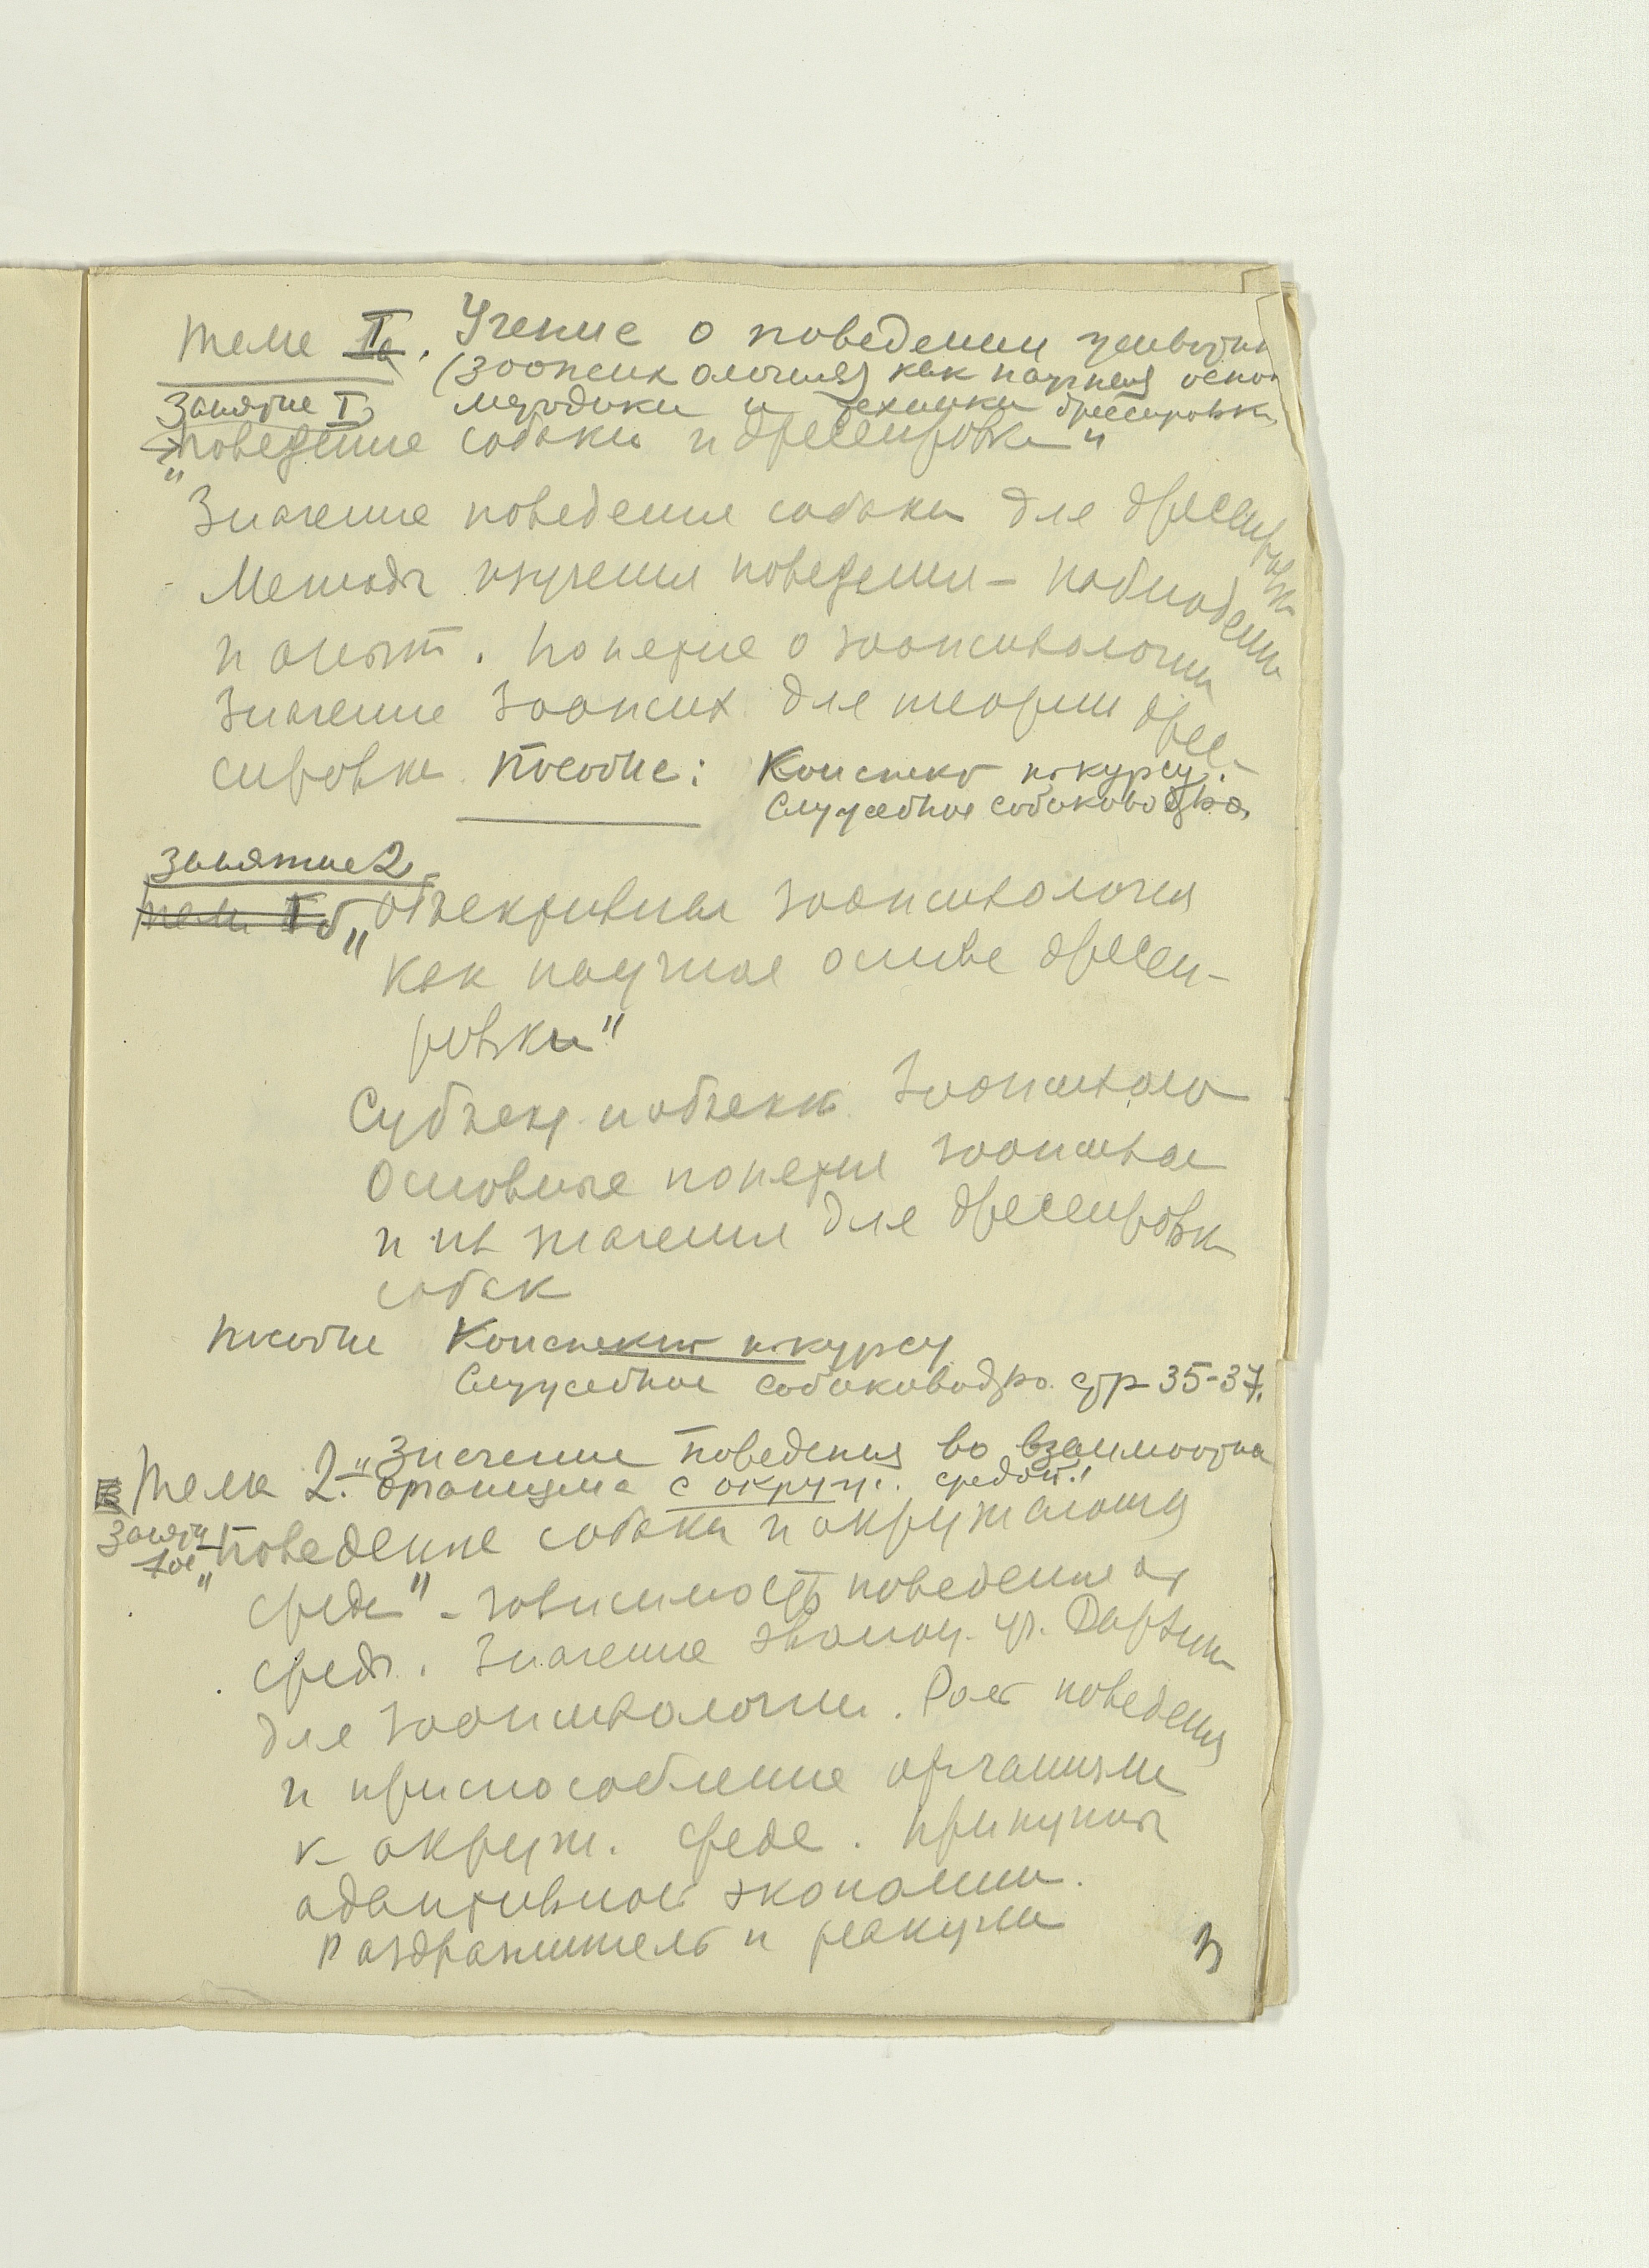 Тема I. Учение о поведении животн
(зоопсихология) как научная осно
Занятие I методики и техники дрессировки
"Поведение собаки и дрессировка"
Значение поведения собаки для дрессировки
Методы изучения поведения – наблюдение
и опыт. Понятие о зоопсихологии
Значение зоопсих. для теории дрес-
сировки. Пособие: Конспект к курсу.
Служебное собаководство
Занятие 2
Тема I б "Объективная зоопсихология
как научная основа дресси-
ровки"
Субъект. и объект. зоопсихоло
Основные понятия зоопсихол
и их значение для дрессировки
собак
Пособие Конспект к курсу
Служебное собаководство. стр 35-37.
Тема 2. "Значение поведения во взаимоотн
организма с окруж. средой"
Занят. "Поведение собаки и окружающая
среда" – зависимость поведения от
среды. Значение эволюц. уч. Дарвина
для зоопсихологии. Роль поведения
и приспособление организма
к окруж. среде. Принципы
адаптивной экономии.
Раздражитель и реакция
3